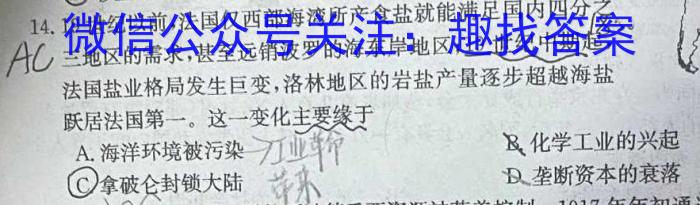 14.
法国仅西部海湾所产食盐就能满足国内四分之
微信公众号关注：趣找答案
AC
三地区的需求，甚至远销波罗的海东岸地区。
法国盐业格局发生巨变，洛林地区的岩盐产量逐步超越海盐
跃居法国第一。这一变化主要缘于
A. 海洋环境被污染
工业革命
B. 化学工业的兴起
C 拿破仑封锁大陆
带来
D. 垄断资本的衰落